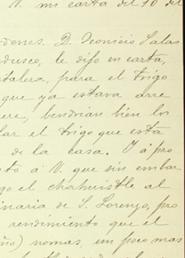 N. mi carta del 10 de
denes. D. Dionisio Salas
dusco, le dijo en carta,
talera, para el trigo
que ya estava arre
ere, bendrian bien los
lar el trigo que está
de la casa. I á pro
to á V. que sin embar
go el chahuistle al
inaria de S. Lorenzo, pro
rendimiento que el
ño) nomas, un poco mas